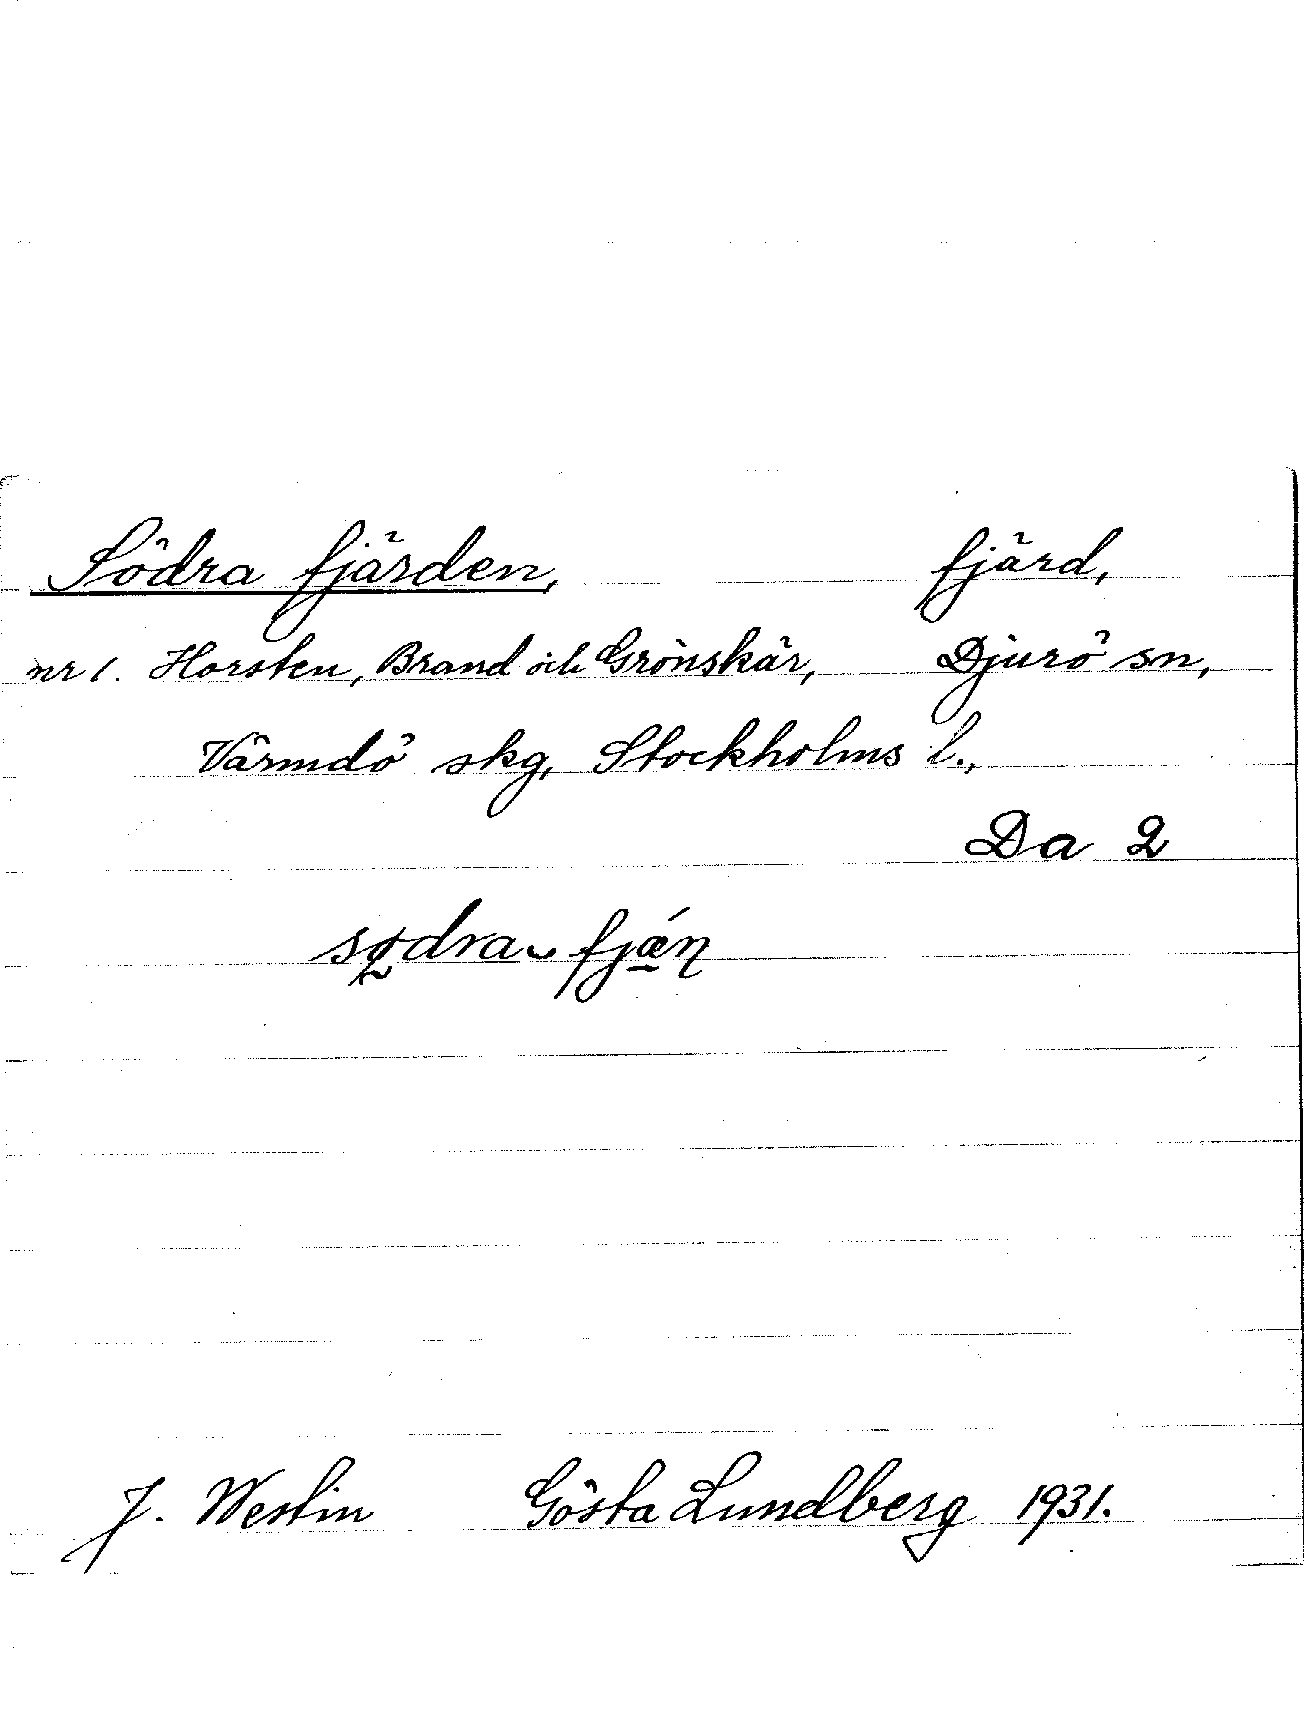 Södra fjärden, fjärd,
nr 1. Horsten, Brand och Grönskär, Djurö sn,
Värmdö skg, Stockholms l.,
Da 2
sødra fjǽn
J. Westin Gösta Lundberg 1931.